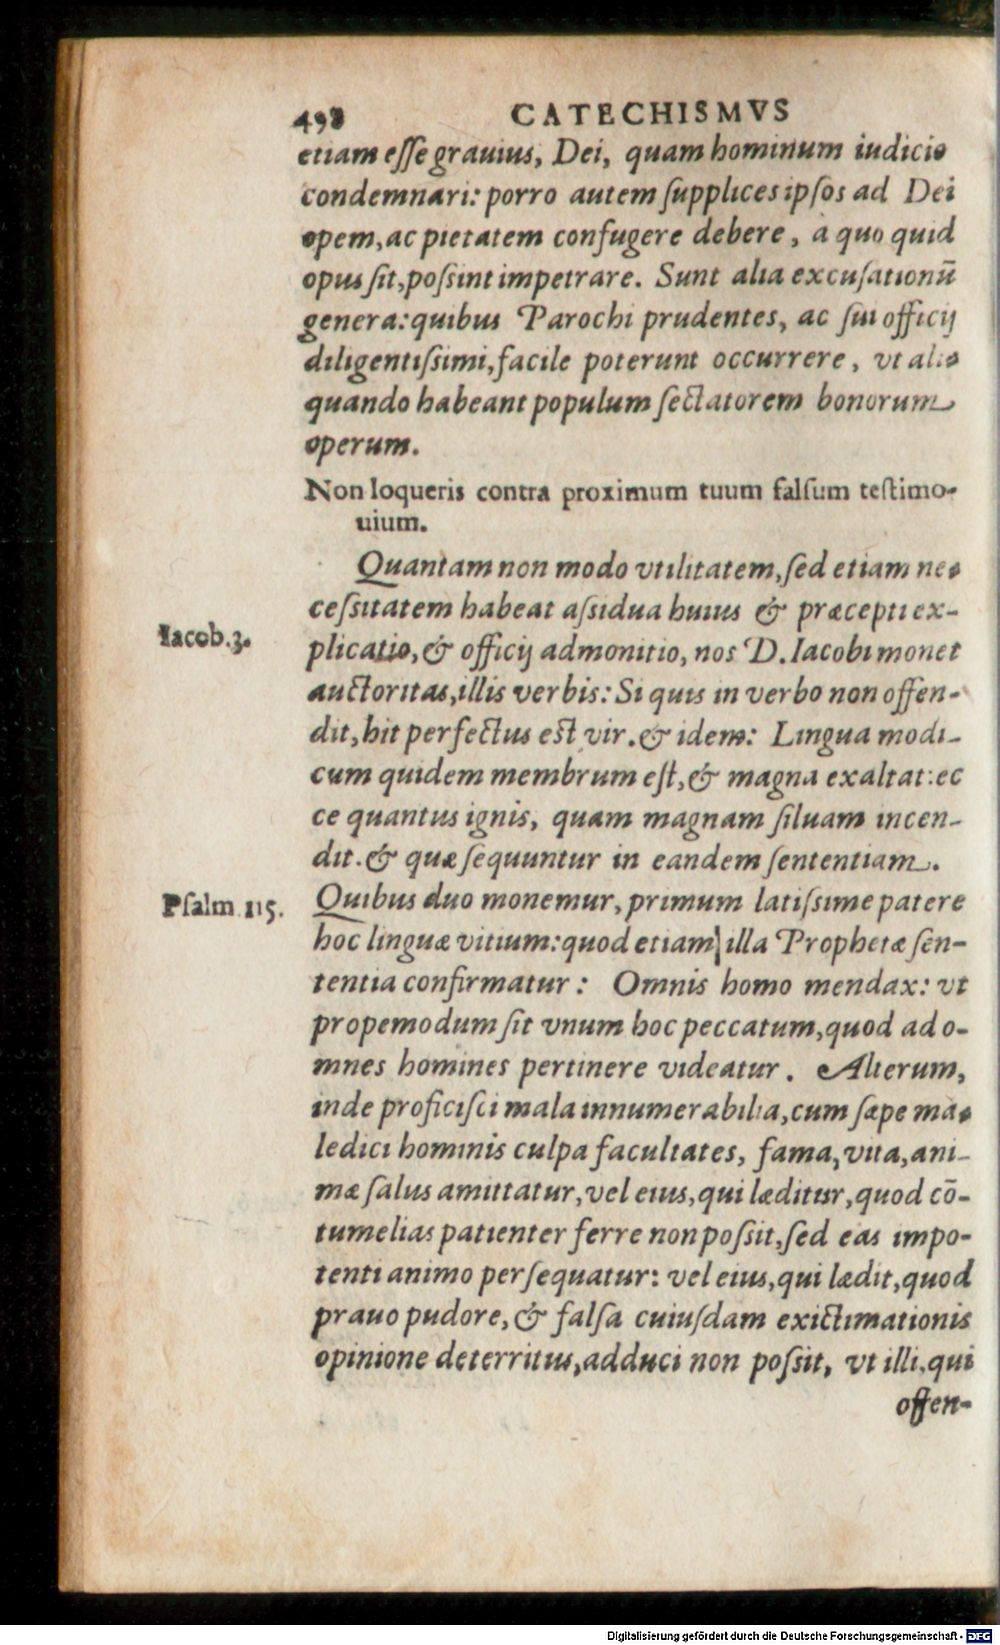 498 CATECHISMVS
etiam eſſe grauius, Dei, quam hominum iudicio
condemnari: porro autem ſupplices ipſos ad Dei
opem, ac pietatem confugere debere, à quo quid
opus ſit, poſsint impetrare. Sunt alia excuſationũ
genera: quibus Parochi prudentes, ac ſui officij
diligentiſsimi, facile poterunt occurrere, vt ali-
quando habeant populum ſectatorem bonorum
operum.
Non loqueris contra proximum tuum falſum teſtimo-
uium.
Quantam non modo vtilitatem, ſed etiam ne-
ceſsitatem habeat aſsidua huius & præcepti ex-
Iacob.3.
plicatio, & officij admonitio, nos D. Iacobi monet
auctoritas, illis verbis: Si quis in verbo non offen-
dit, hit perfectus est vir. & idem: Lingua modi-
cum quidem membrum eſt, & magna exaltat: ec
ce quantus ignis, quam magnam ſiluam incen-
dit. & quæ ſequuntur in eandem ſententiam.
Pſalm.115.
Quibus duo monemur, primum latiſsime patere
hoc linguæ vitium: quod etiam illa Prophetæ ſen-
tentia confirmatur: Omnis homo mendax: vt
propemodum ſit vnum hoc peccatum, quod ad o-
mnes homines pertinere videatur. Alterum,
inde proficiſci mala innumerabilia, cum ſæpe ma-
ledici hominis culpa facultates, fama, vita, ani-
mæ ſalus amittatur, vel eius, qui læditur, quod cō-
tumelias patienter ferre non poſsit, ſed eas impo-
tenti animo perſequatur: vel eius, qui lædit, quod
prauo pudore, & falſa cuiuſdam exictimationis
opinione deterritus, adduci non poſsit, vt illi, qui
offen-
Digitalisierung gefördert durch die Deutsche Forschungsgemeinschaft - DFG